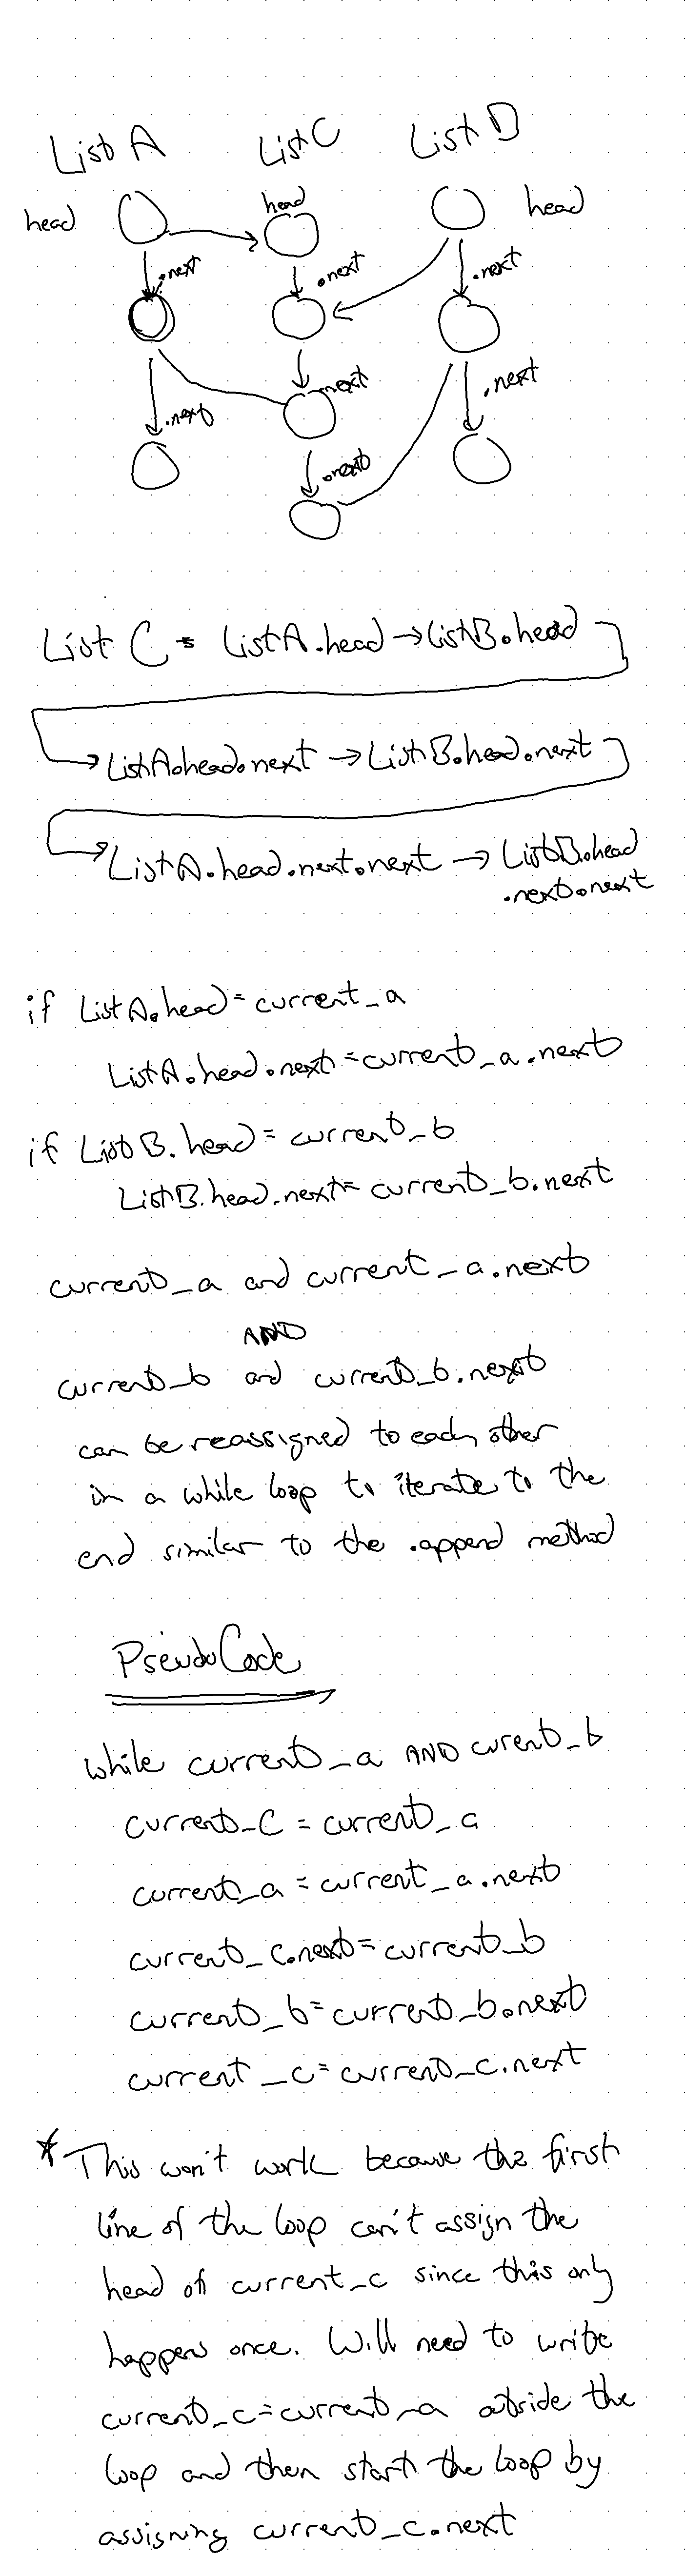 List A List C List D
head head head
.next .next .next
.next .next .next
.next
List C = ListA.head → ListB.head
→ ListA.head.next → ListB.head.next
→ ListA.head.next.next → ListB.head
.next.next
if ListA.head = current_a
ListA.head.next = current_a.next
if ListB.head = current_b
ListB.head.next = current_b.next
current_a and current_a.next
AND
current_b and current_b.next
can be reassigned to each other
in a while loop to iterate to the
end similar to the .append method
PseudoCode
while current_a AND curent_b
current_c = current_a
current_a = current_a.next
current_c.next = current_b
current_b = current_b.next
current_c = current_c.next
* This won't work because the first
line of the loop can't assign the
head of current_c since this only
happens once. Will need to write
current_c = current_a outside the
loop and then start the loop by
assigning current_c.next